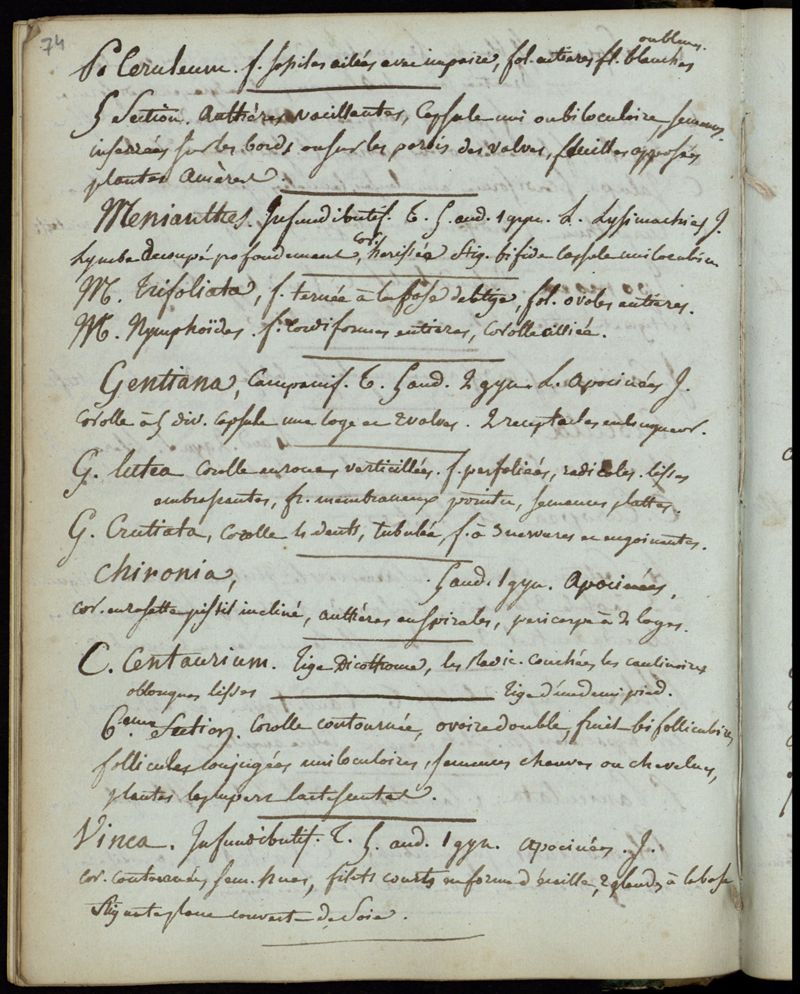 74
P. Ceruleum. f. sessiles ailées avec impaire, fol. entieres fl. blanches ou bleues.
5 Section. Anthéres vacillantes, Capsule uni ou biloculaire, semences
inserrées sur les bords ou sur les parois des valves, feuilles opposées
plantes amères.
Menianthes. Infundibulif. T. 5 and. 1 gyn. L. Lysimachies J.
Lymbe decoupé profondement, cor. herissée stig. bifide capsule uniloculaire
M. Trifoliata, f. ternée à la base de la tige, fol. ovales entieres.
M. Nymphoïdes. f. cordiformes entieres, corolle ciliée.
Gentiana, Campanif. T. 5 and. 2 gyn. L. Apocinées J.
Corolle à 5 div. capsule une loge en 2 valves. 2 receptacles en longueur.
G. lutea corolle en roue, verticillées. f. perfoliées, radicales lisses
embrassantes, fr. membraneux pointu, semences plattes.
G. Crutiata, corolle 4 dents, tubulée, f. à 3 nervures en engainantes.
Chironia, 5 and. 1 gyn. Apocinées,
cor. en rosette pistil incliné, anthéres en spirales, pericarpe à 2 loges.
C. Centaurium. Tige Dicothome, les Radic. couchées les caulinaires
oblongues lisses Tige d'un demi pied.
6eme Section. Corolle contournée, ovaire double, fruit bifolliculaire,
follicules conjuguées uniloculaires, semences chauves ou chevelues,
plantes lactescentes.
Vinca. Infundibulif. T. 5. and. 1 gyn. Apocinées. J.
cor. contournée, sem. nues, filets courts en forme d'écaille, 2 glandes à la base
Stigmate plane couvert de Soie.